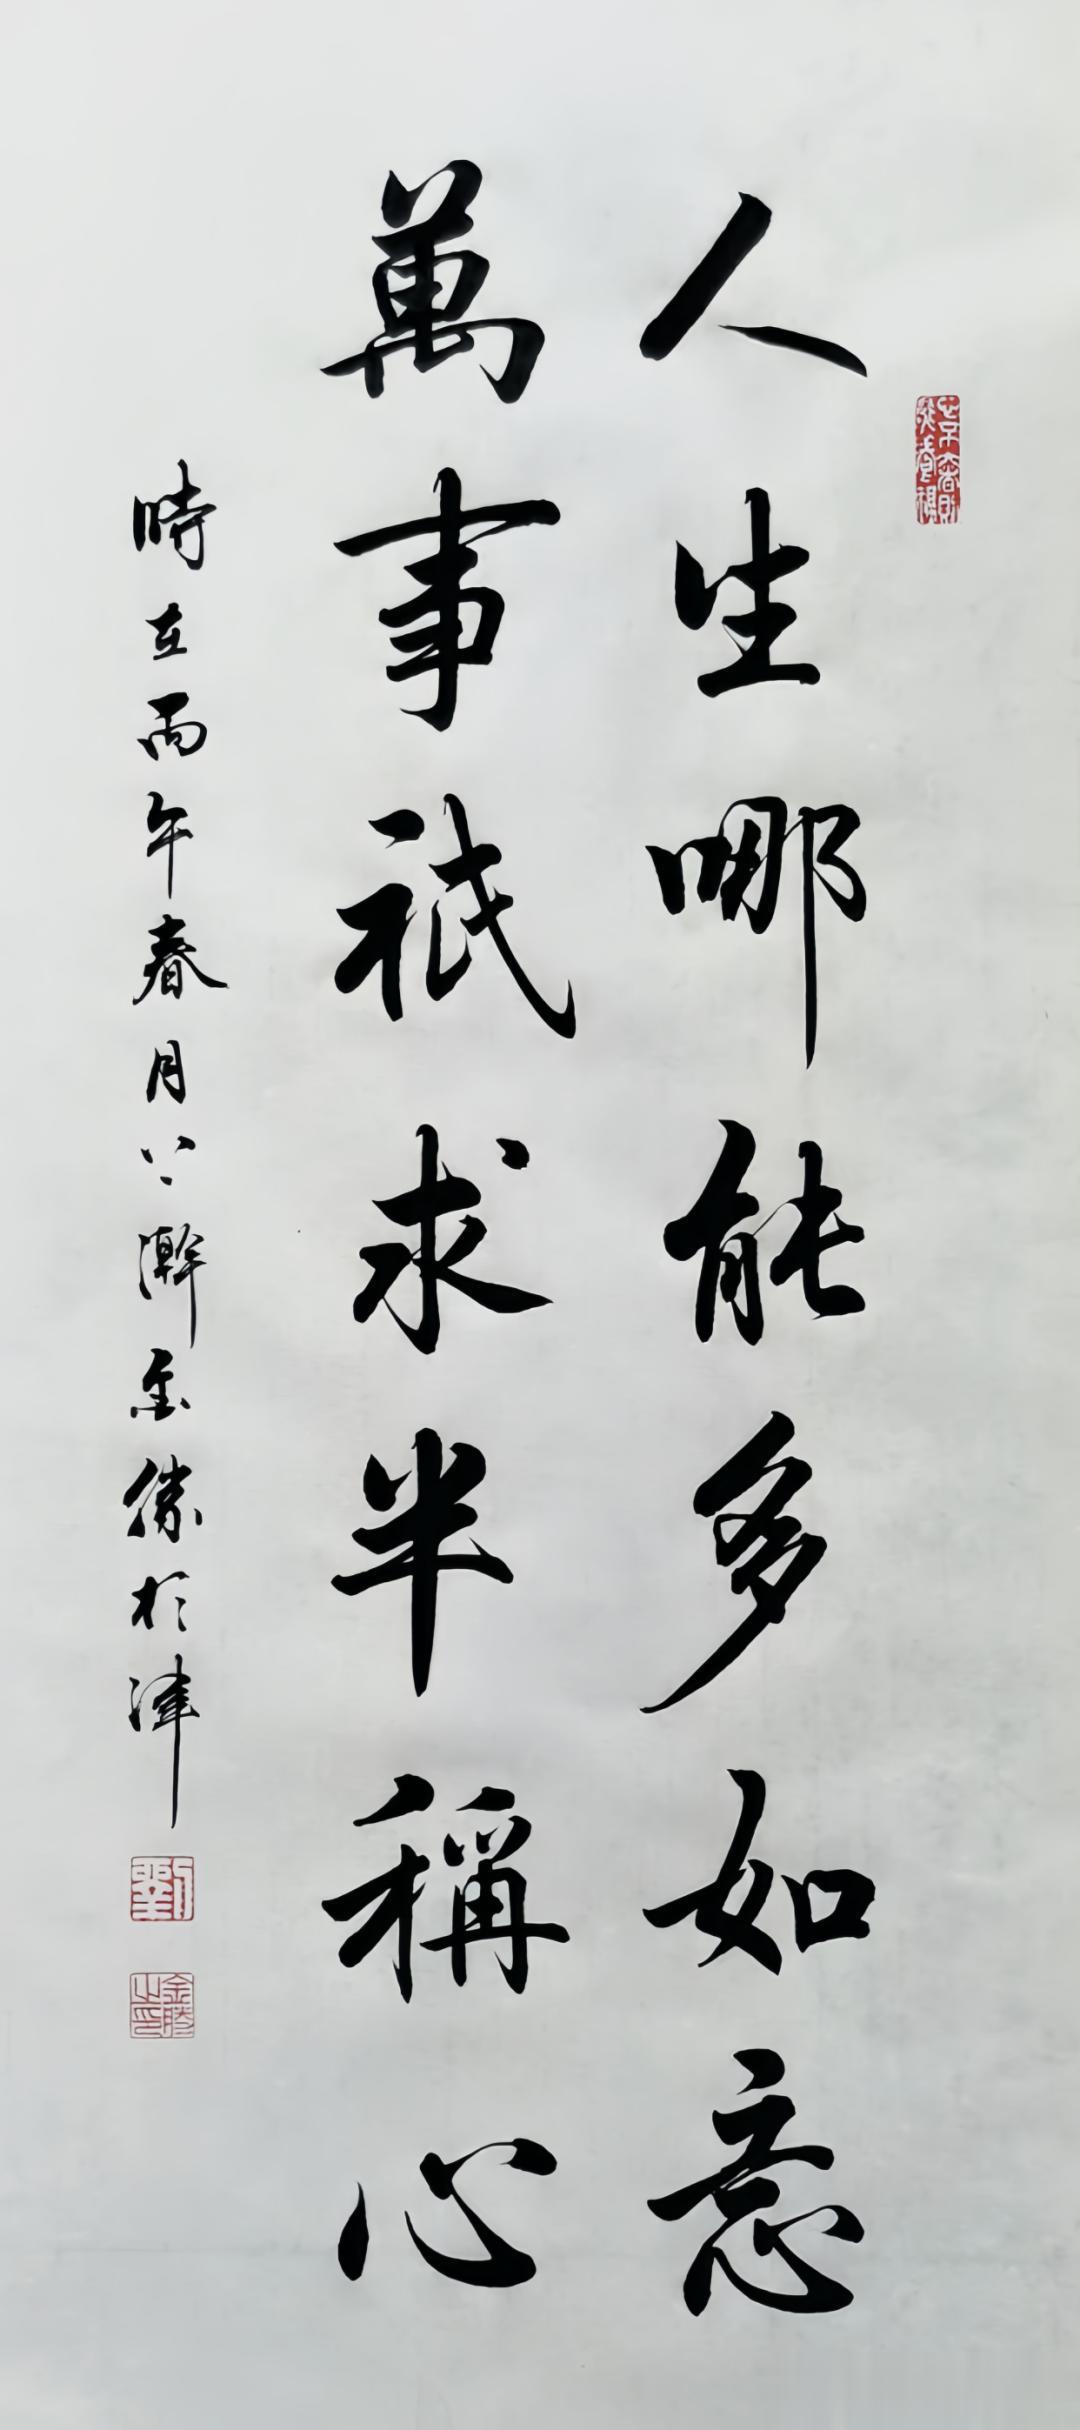 人生哪能多如意
萬事祇求半稱心
時在丙午春月上澣金勝於津
劉
金勝之印